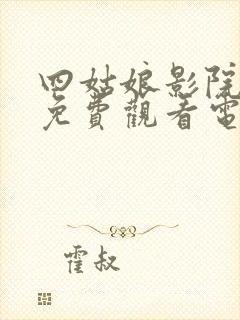 四姑娘影院
免費觀看電
霍叔